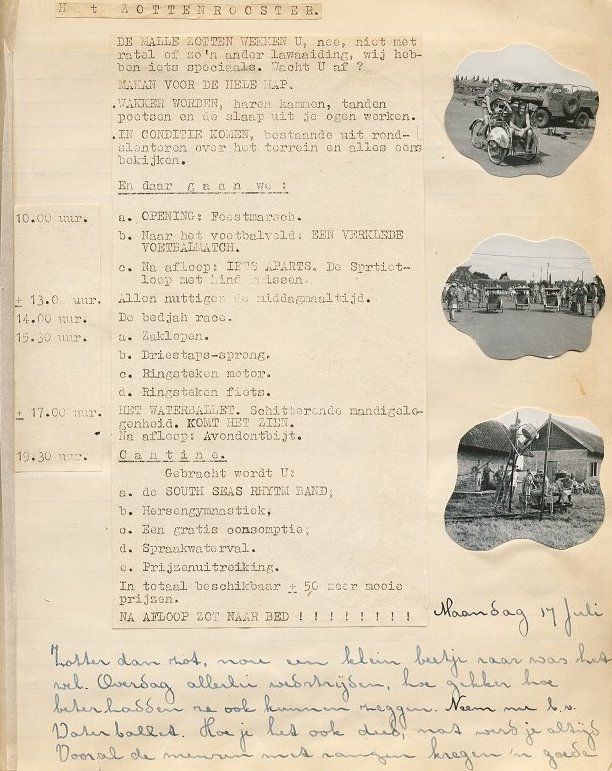 Het ZOTTENROOSTER.
DE MALLE ZOTTEN WEKKEN U, nee, niet met
ratel of zo'n ander lawaaiding, wij heb-
ben iets speciaals. Wacht U af ?
MAKAN VOOR DE HELE HAP.
WAKKER WORDEN, haren kammen, tanden
poetsen en de slaap uit je ogen werken.
IN CONDITIE KOMEN, bestaande uit rond-
slenteren over het terrein en alles eens
bekijken.
En daar g a a n we :
10.00 uur. a. OPENING: Feestmarsch.
b. Naar het voetbalveld: EEN VERKLEDE
VOETBALMATCH.
c. Na afloop: IETS APARTS. De Sprtiet-
loop met hindernissen.
± 13.00 uur. Allen nuttigen de middagmaaltijd.
14.00 uur. De bedjah race.
15.30 uur. a. Zaklopen.
b. Driestaps-sprong.
c. Ringsteken motor.
d. Ringsteken fiets.
± 17.00 uur. HET WATERBALLET. Schitterende mandigele-
genheid. KOMT HET ZIEN.
Na afloop: Avondontbijt.
19.30 uur. C a n t i n e .
Gebracht wordt U:
a. de SOUTH SEAS RHYTM BAND;
b. Hersengymnastiek,
c. Een gratis consomptie;
d. Spraakwaterval.
e. Prijzenuitreiking.
In totaal beschikbaar ± 50 zeer mooie
prijzen.
NA AFLOOP ZOT NAAR BED ! ! ! ! ! ! ! ! !
Maandag 17 Juli
Zotter dan zot, nou een klein beetje raar was het
wel. Overdag allerlei wedstrijden, hoe gekker hoe
beter hadden ze ook kunnen zeggen. Neem nu b.v.
Waterballet. Hoe je het ook deed, nat werd je altijd
Vooral de mensen met rangen kregen 'n goede